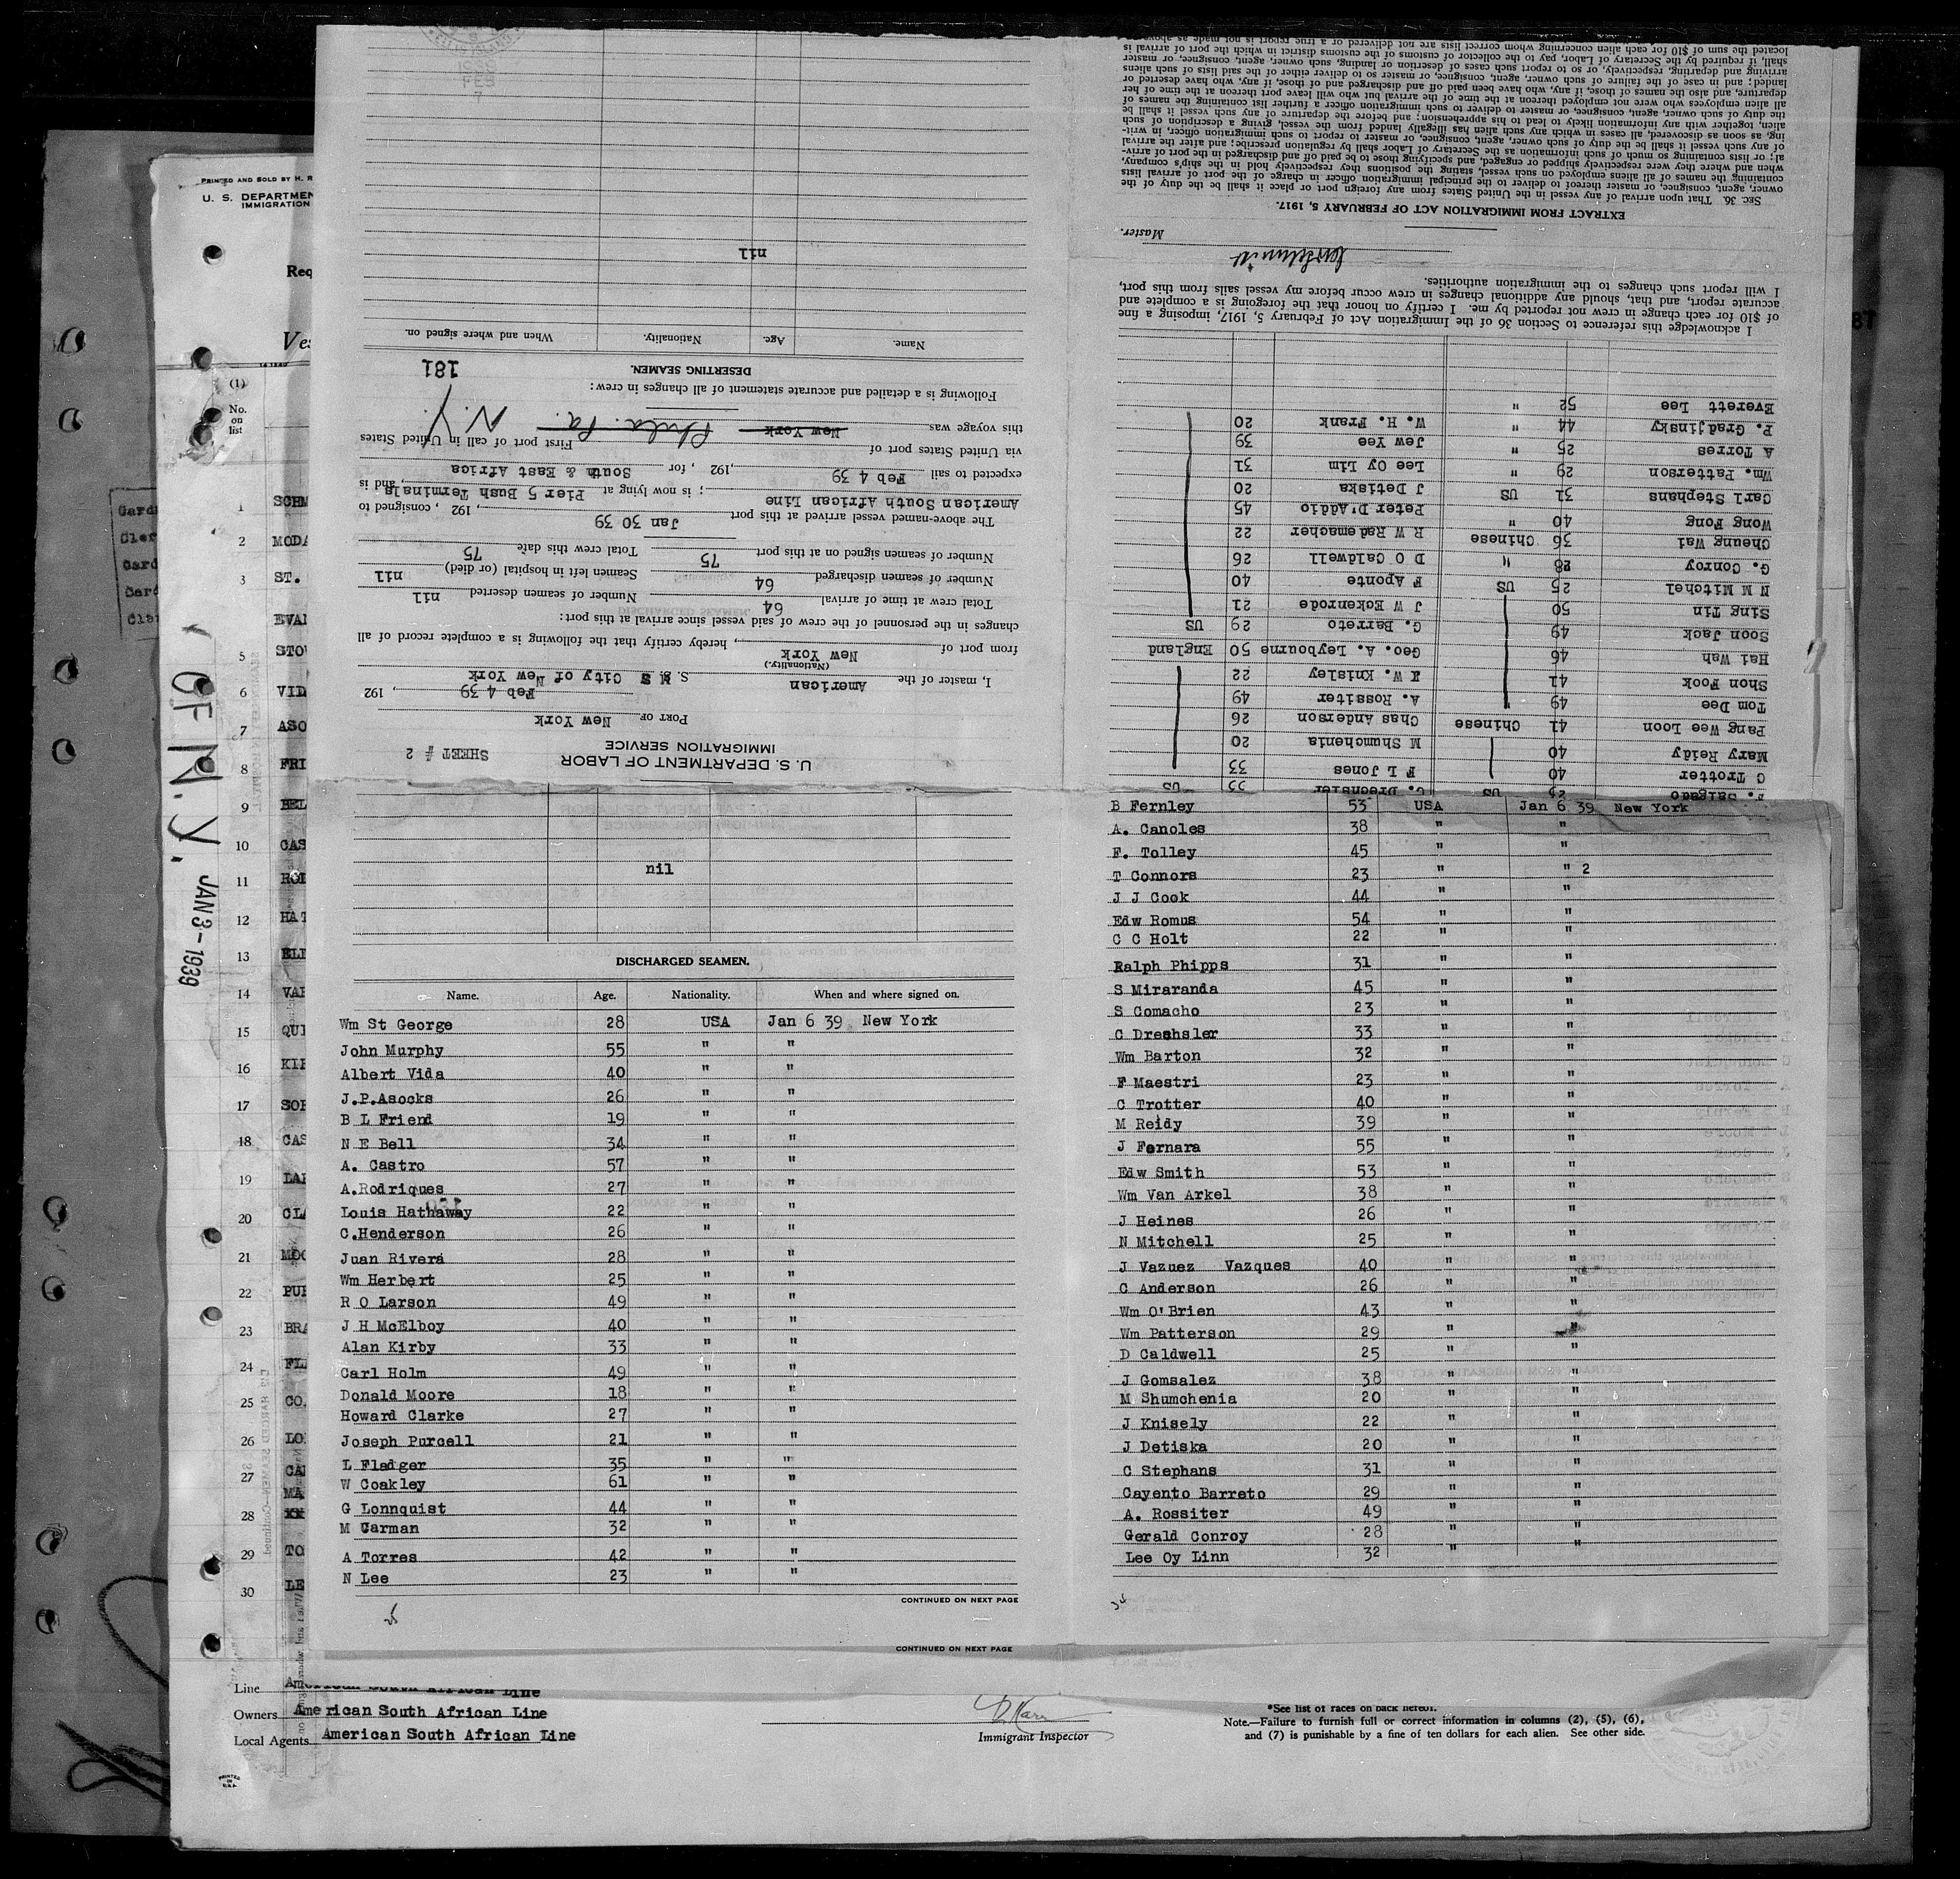 PRINTED AND SOLD BY H. R
U. S. DEPARTMEN
IMMIGRATION
Req
Ves
(1)
No.
on
list
OF N.Y. JAN 3-1939
Gard
Cler
Gard
Gard
Cler
1 SCHM
2 MODA
3 ST.
EVAN
5 STO
6 VID
7 ASO
8 FRI
9 BEL
10 CAS
11 ROD
12 HAT
13 ELL
14 VAR
15 QUI
16 KIR
17 SOR
18 CAS
19 LAR
20 CLA
21 MOO
22 PUR
23 BRA
24 FLA
25 CO.
26 LO
27 CAR
MA
28 XX
29 TO
30 LE
U. S. DEPARTMENT OF LABOR
IMMIGRATION SERVICE
SHEET # 2
PORT OF New York
Feb 4 39, 192
I, master of the American S. S. M S City of New York
(Nationality.)
from port of New York, hereby certify that the following is a complete record of all
changes in the personnel of the crew of said vessel since arrival at this port:
Total crew at time of arrival 64 Number of seamen deserted nil
Number of seamen discharged 64 Seamen left in hospital (or died) nil
Number of seamen signed on at this port 75 Total crew this date 75
The above-named vessel arrived at this port Jan 30 39, 192 , consigned to
American South African Line; is now lying at Pier 5 Bush Terminals, and is
expected to sail Feb 4 39, 192 , for South & East Africa
via United States port of First port of call in United States
this voyage was New York Phila. Pa. N.Y.
Following is a detailed and accurate statement of all changes in crew:
181
DESERTING SEAMEN.
Name. Age. Nationality. When and where signed on.
nil
F. Salgado 25 US C. Drechsler 33 US
C Trotter 40 F L Jones 33
Mary Reidy 40 M Shumchenia 20
Pang Wee Loon 41 Chinese Chas Anderson 26
Tom Dee 49 A. Rossiter 49
Shon Fook 41 I W. Knisley 22
Hai Wah 46 Geo. A. Leybourne 50 England
Soon Jack 49 G. Barreto 29 US
Sing Tin 50 J W Eckenrode 21
N M Mitchel 25 US F Aponte 40
G. Conroy 28 " D O Caldwell 26
Cheung Wai 36 Chinese R W Rademacher 22
Wong Fong 40 " Peter D'Addio 45
Carl Stephans 31 US J Detiska 20
Wm. Patterson 29 " Lee Oy Lim 31
A Torres 25 " Jew Yee 39
P. Gradjinsky 44 " W. H. Frank 20
Everett Lee 52 "
I acknowledge this reference to Section 36 of the Immigration Act of February 5, 1917, imposing a fine
of $10 for each change in crew not reported by me. I certify on honor that the foregoing is a complete and
accurate report, and that, should any additional changes in crew occur before my vessel sails from this port,
I will report such changes to the immigration authorities.
Master.
EXTRACT FROM IMMIGRATION ACT OF FEBRUARY 5, 1917.
SEC. 36. That upon arrival of any vessel in the United States from any foreign port or place it shall be the duty of the
owner, agent, consignee, or master thereof to deliver to the principal immigration officer in charge of the port of arrival lists
containing the names of all aliens employed on such vessel, stating the positions they respectively hold in the ship's company,
when and where they were respectively shipped or engaged, and specifying those to be paid off and discharged in the port of arriv-
al; or lists containing so much of such information as the Secretary of Labor shall by regulation prescribe; and after the arrival
of any such vessel it shall be the duty of such owner, agent, consignee, or master to report to such immigration officer, in writ-
ing, as soon as discovered, all cases in which any such alien has illegally landed from the vessel, giving a description of such
alien, together with any information likely to lead to his apprehension; and before the departure of any such vessel it shall be
the duty of such owner, agent, consignee, or master to deliver to such immigration officer a further list containing the names of
all alien employees who were not employed thereon at the time of the arrival but who will leave port thereon at the time of her
departure, and also the names of those, if any, who have been paid off and discharged and of those, if any, who have deserted or
landed; and in case of the failure of such owner, agent, consignee, or master so to deliver either of the said lists of such aliens
arriving and departing, respectively, or so to report such cases of desertion or landing, such owner, agent, consignee, or master
shall, if required by the Secretary of Labor, pay to the collector of customs of the customs district in which the port of arrival is
located the sum of $10 for each alien concerning whom correct lists are not delivered or a true report is not made as above
nil
DISCHARGED SEAMEN.
Name. Age. Nationality. When and where signed on.
Wm St George 28 USA Jan 6 39 New York
John Murphy 55 " "
Albert Vida 40 " "
J.P.Asocks 26 " "
B L Friend 19 " "
N E Bell 34 " "
A. Castro 57 " "
A.Rodriques 27 " "
Louis Hathaway 22 " "
C.Henderson 26 " "
Juan Rivera 28 " "
Wm Herbert 25 " "
R O Larson 49 " "
J H McElboy 40 " "
Alan Kirby 33 " "
Carl Holm 49 " "
Donald Moore 18 " "
Howard Clarke 27 " "
Joseph Purcell 21 " "
L Fladger 35 " "
W Coakley 61 " "
G Lonnquist 44 " "
M Carman 32 " "
A Torres 42 " "
N Lee 23 " "
CONTINUED ON NEXT PAGE
B Fernley 53 USA Jan 6 39 New York
A. Canoles 38 " "
F. Tolley 45 " "
T Connors 23 " " 2
J J Cook 44 " "
Edw Romus 54 " "
C C Holt 22 " "
Ralph Phipps 31 " "
S Miraranda 45 " "
S Comacho 23 " "
C Drechsler 33 " "
Wm Barton 32 " "
F Maestri 23 " "
C Trotter 40 " "
M Reidy 39 " "
J Fernara 55 " "
Edw Smith 53 " "
Wm Van Arkel 38 " "
J Heines 26 " "
N Mitchell 25 " "
J Vazuez Vazques 40 " "
C Anderson 26 " "
Wm O'Brien 43 " "
Wm Patterson 29 " "
D Caldwell 25 " "
J Gomsalez 38 " "
M Shumchenia 20 " "
J Knisely 22 " "
J Detiska 20 " "
C Stephans 31 " "
Cayento Barreto 29 " "
A. Rossiter 49 " "
Gerald Conroy 28 " "
Lee Oy Linn 32 " "
34
CONTINUED ON NEXT PAGE
Line American South African Line
Owners American South African Line
Local Agents American South African Line
Immigrant Inspector
*See list of races on back hereof.
Note.—Failure to furnish full or correct information in columns (2), (5), (6),
and (7) is punishable by a fine of ten dollars for each alien. See other side.
PRINTED
IN
U.S.A.